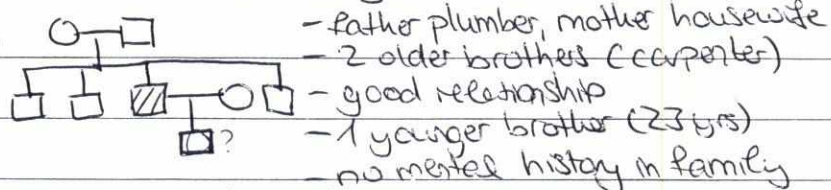 - father plumber, mother housewife
- 2 older brothers (carpenter)
- good relationship
- 1 younger brother (23 yrs)
?
- no mental history in family